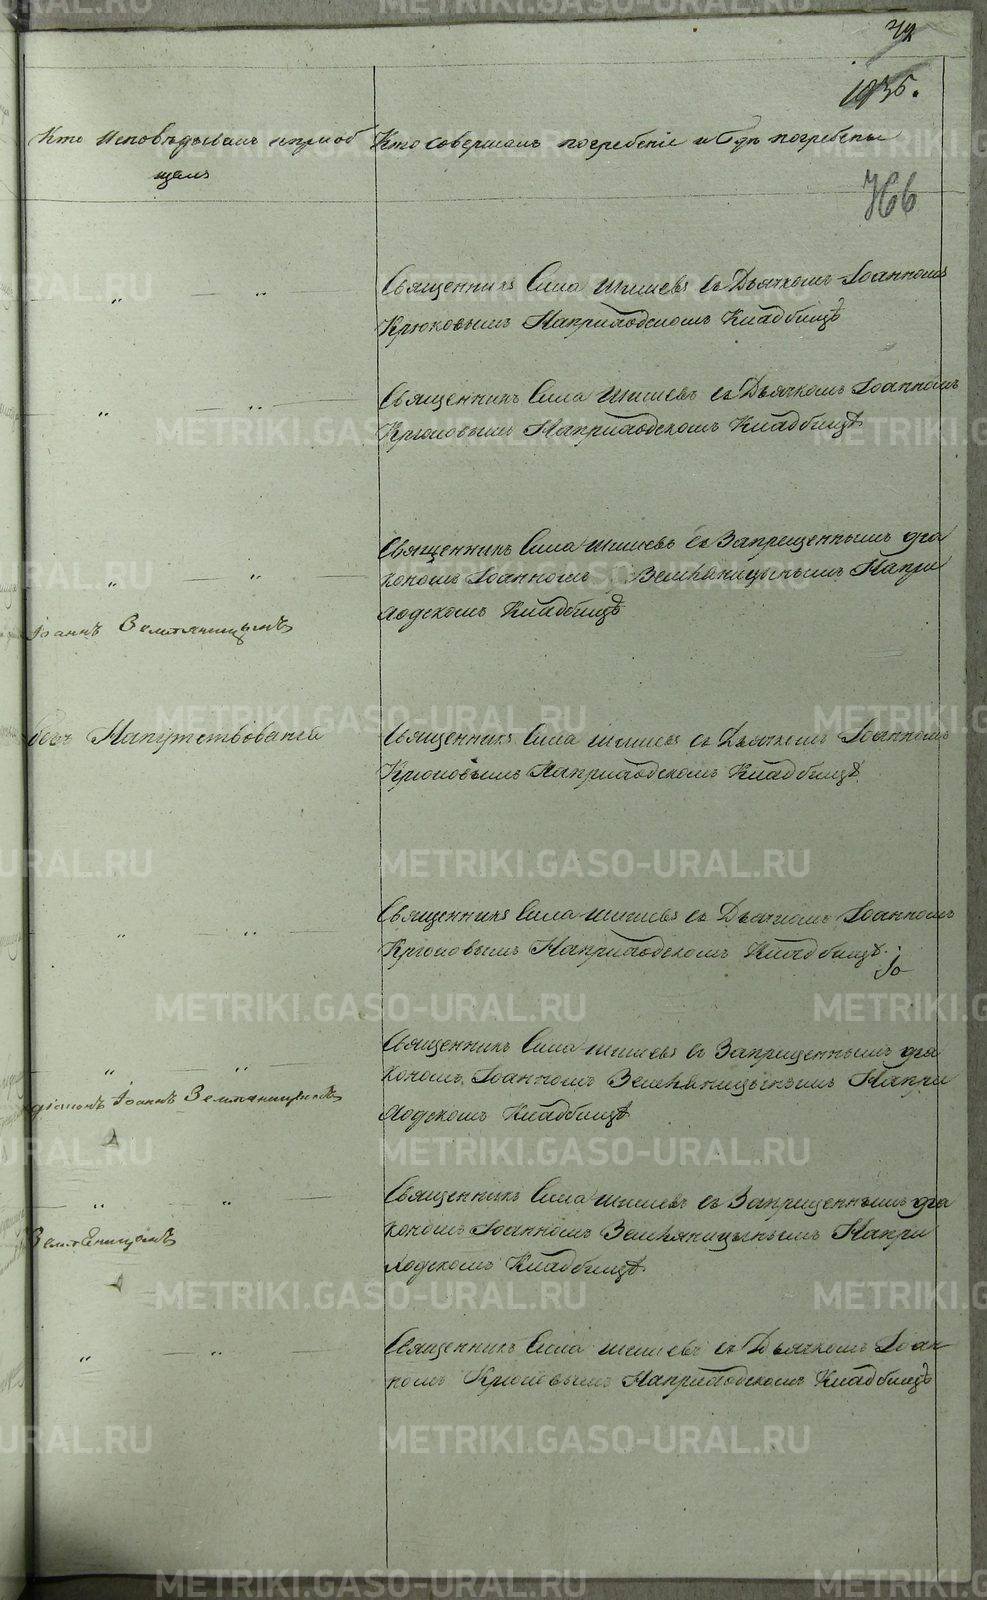 1035.
766
Кто Исповѣдывалъ и приоб
щалъ
Кто совершалъ погребенiе и Гдѣ погребены
Священникъ Сила Шишевъ съ Дьячкомъ Iоанномъ
Крюковымъ На приходскомъ Кладбищѣ
Священникъ Сила Шишевъ съ Дьячкомъ Iоанномъ
Крюковымъ На приходскомъ Кладбищѣ
Священникъ Сила Шишевъ съ Запрещеннымъ диа
кономъ Iоанномъ Земляницынымъ На при
ходскомъ Кладбищѣ
Iоаннъ Земляницынъ
безъ Напутствованiя
Священникъ Сила Шишевъ съ Дьячкомъ Iоанномъ
Крюковымъ На приходскомъ Кладбищѣ.
Священникъ Сила Шишевъ съ Дьячкомъ Iоанномъ
Крюковымъ На приходскомъ Кладбищѣ.
Священникъ Сила Шишевъ съ Запрещеннымъ диа
кономъ Iоанномъ Земляницынымъ На при
ходскомъ Кладбищѣ
дiаконъ Iоаннъ Земляницынъ
Священникъ Сила Шишевъ съ Запрещеннымъ диа
кономъ Iоанномъ Земляницынымъ На при
ходскомъ Кладбищѣ.
Земляницынъ
Священникъ Сила Шишевъ съ Дьячкомъ Iоан
номъ Крюковымъ На приходскомъ Кладбищѣ
METRIKI.GASO-URAL.RU